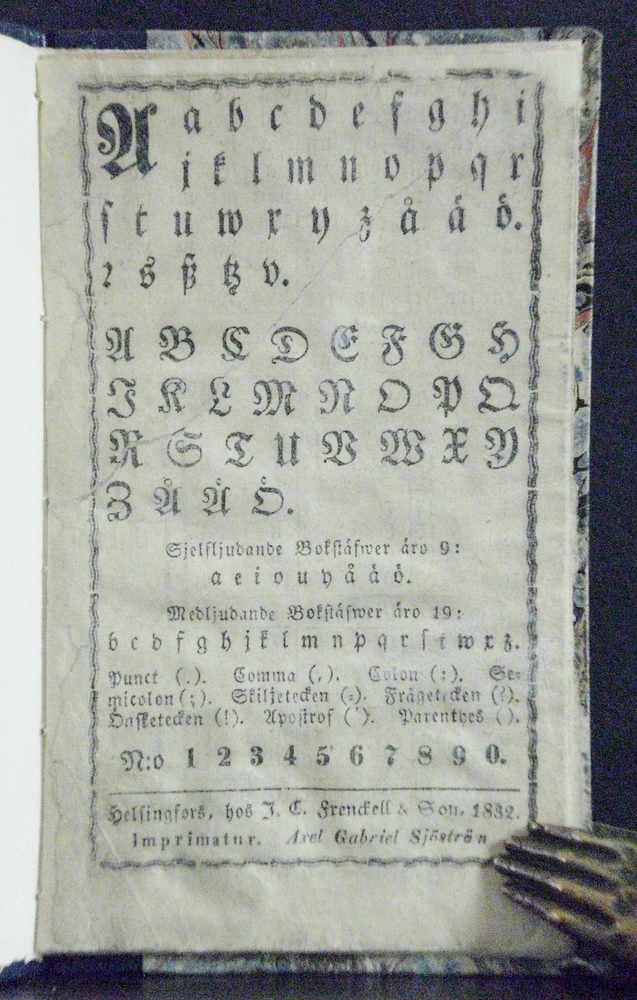 A a b c d e f g h i
j k l m n o p q r
s t u w x y z å ä ö.
r s ß tz v.
A B C D E F G H
I K L M N O P Q
R S T U V W X Y
Z Å Ä Ö.
Sjelfljudande Bokstäfwer äro 9:
a e i o u y å ä ö.
Medljudande Bokstäfwer äro 19:
b c d f g h j k l m n p q r s t w x z.
Punct (.). Comma (,). Colon (:). Se-
micolon (;). Skiljetecken (-). Frågetecken (?).
Önsketecken (!). Apostrof ('). Parenthes ( ).
N:o 1 2 3 4 5 6 7 8 9 0.
Helsingfors, hos J. C. Frenckell & Son. 1832.
Imprimatur. Axel Gabriel Sjöström